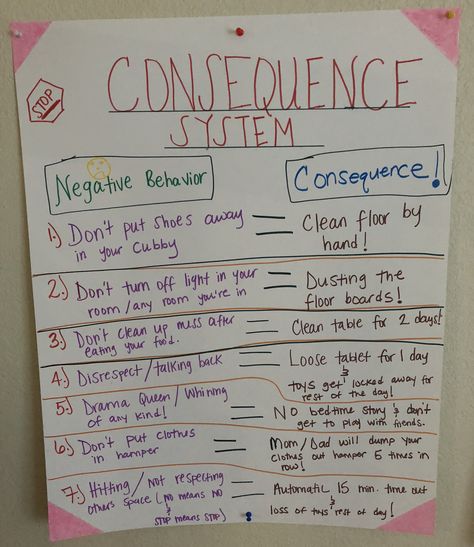 CONSEQUENCE
STOP
SYSTEM
Negative Behavior
Consequence!
1.) Don't put shoes away = Clean floor by
in your cubby hand!
2.) Don't turn off light in your = Dusting the
room / any room you're in floor boards!
3.) Don't clean up mess after = Clean table for 2 days!
eating your food.
4.) Disrespect / talking back = Loose tablet for 1 day
& toys get locked away for
rest of the day!
5.) Drama Queen / Whining = No bedtime story & don't
of any kind! get to play with friends.
6.) Don't put clothes = Mom / Dad will dump your
in hamper clothes out hamper 5 times in
row!
7.) Hitting / Not respecting = Automatic 15 min. time out
others space (No means No &
& STOP means STOP) loss of toys rest of day!